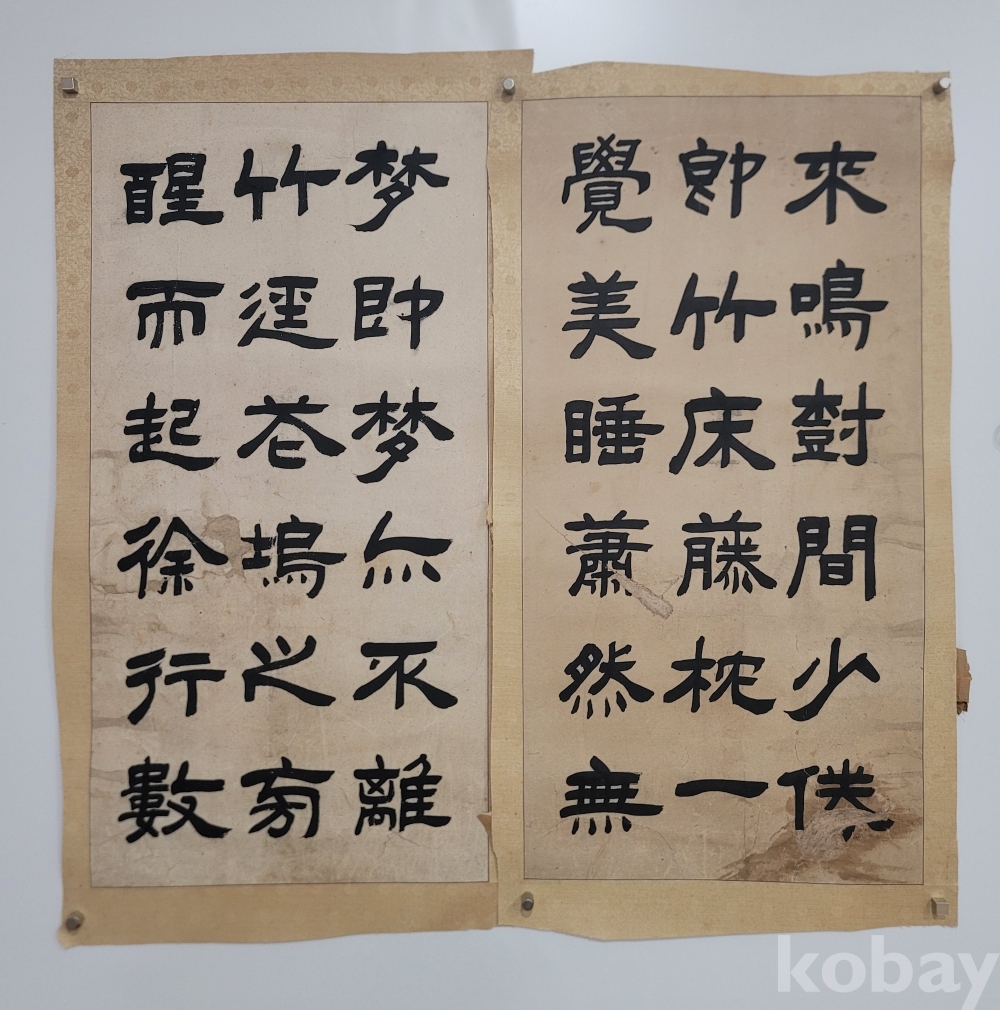 來鳴對間少倦
卽竹床藤枕一
覺美睡蕭然無
梦即梦亦不離
竹逕花塢之旁
醒而起徐行數
kobay